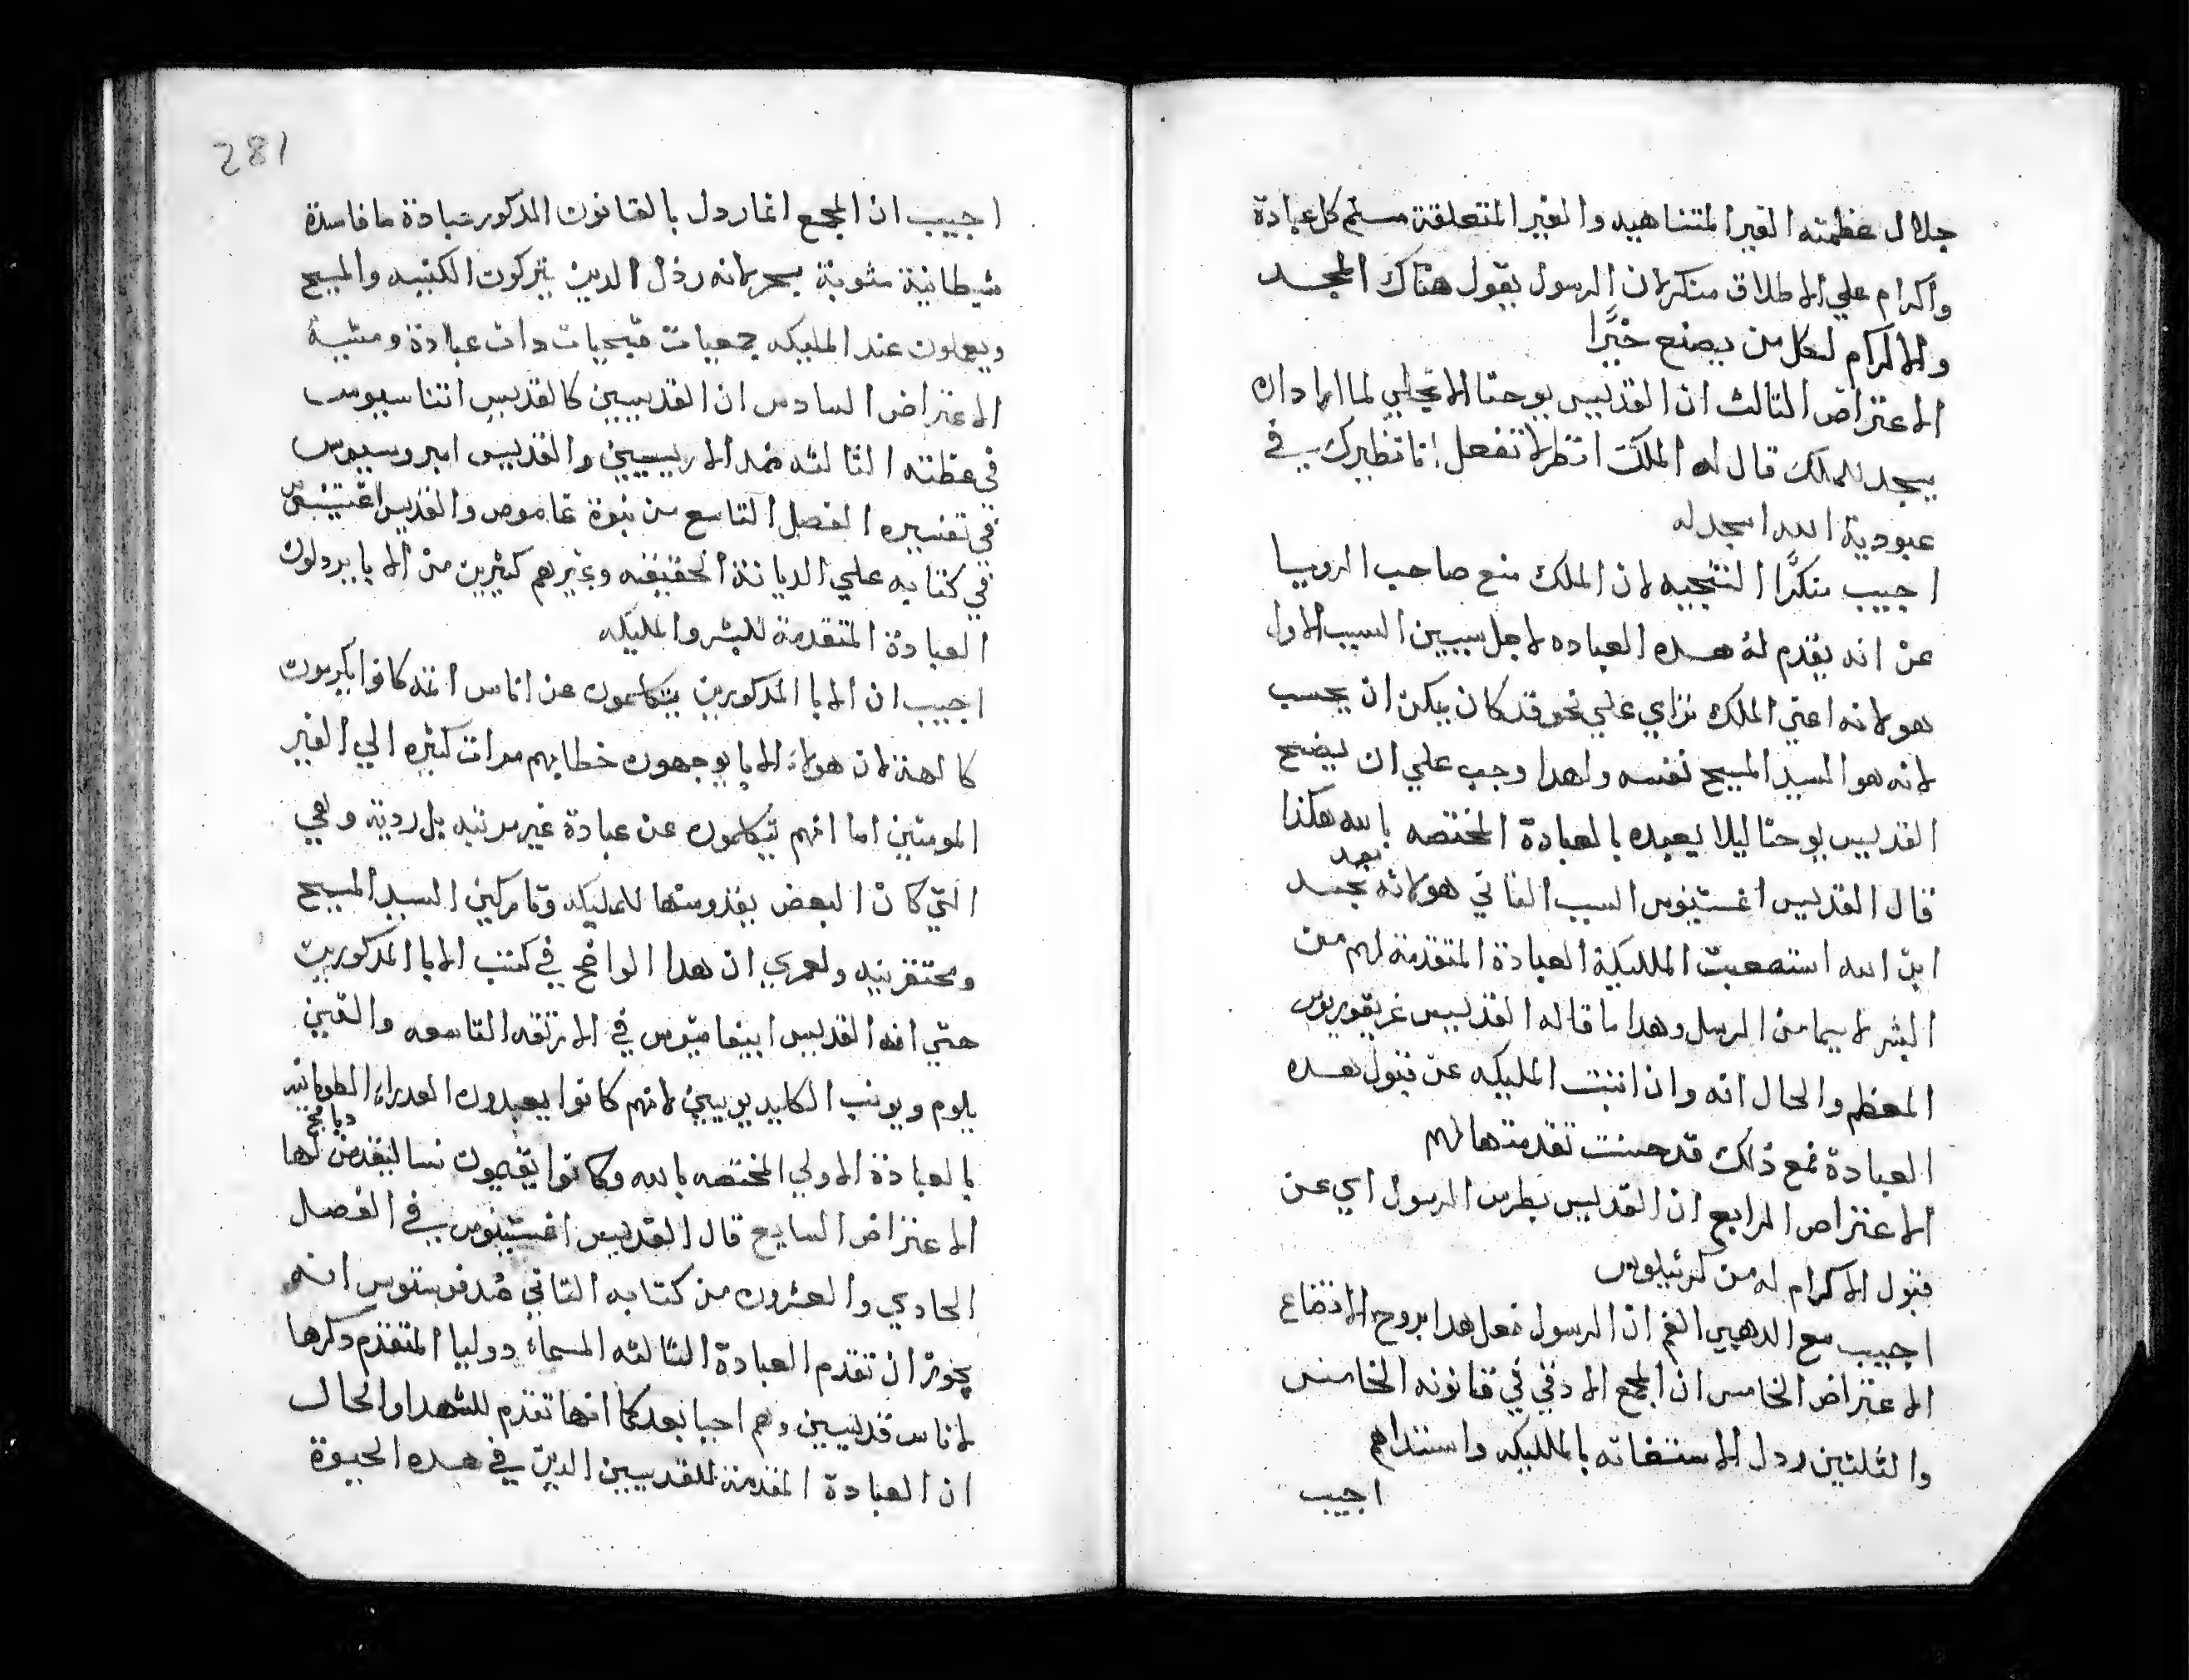 جلال عظمته الغير المتناهيه والغير المتعلقة مسلم كل عبادة
واكرام علي الاطلاق منكر لان الرسول يقول هناك المجد
والاكرام لكل من يصنع خيرًا
الاعتراض التالت ان القديس يوحنا الانجيلي لما اراد ان
يسجد للملك قال له الملك انظر لا تفعل انا نظيرك في
عبودية الله اسجد له
اجيب منكرًا النتيجيه لان الملك منع صاحب الرويا
عن انه يقدم له هده العباده لاجل سببين السبب الاول
هو لانه اعني الملك تراي علي نحو قد كان يمكن ان يحسب
لانه هو السيد المسيح نفسه ولهدا وجب علي ان ينصح
القديس يوحنا ليلا يعبده بالعبادة المختصه بالله هكذا
قال القديس اغسطينوس السبب التاني هو لانه بعد تجسد
ابن الله استصعبت المليكة العبادة المتقدمة لهم من
البشر لا سيما من الرسل وهدا ما قاله القديس غريقوريوس
المعظم والحال انه وان انبت المليكه عن قبول هده
العبادة فمع ذلك قد حسنت تقدمتها لهم
الاعتراض الرابع ان القديس بطرس الرسول ابي عن
قبول الاكرام له من كرنيليوس
اجيب مع الدهبي الفم ان الرسول فعل هدا بروح الاتضاع
الاعتراض الخامس ان المجمع الادقي في قانونه الخامس
والثلثين ردل الاستغاته بالمليكه واستنداهم
اجيب
281
اجيب ان المجمع انما ردل بالقانون المدكور عبادة ما فاسدة
شيطانية مشوبة بسحر لانه رذل الدين يتركون الكنيسه والمسيح
ويعملون عند المليكه جمعيات قبيحيات دات عبادة وثنية
الاعتراض السادس ان القديسين كالقديس اتناسيوس
في عظته التالته ضد الاريسيين والقديس امبروسيوس
في تفسيره الفصل التاسع من نبوة عاموص والقديس اغستينوس
في كتابه علي الديانة الحقيقيه وغيرهم كثيرين من الابا يردلون
العبادة المتقدمة للبشر والمليكه
اجيب ان الابا المدكورين يتكلمون عن اناس انه كانوا يكرمون
كالهة لان هولاء الابا يوجهون خطابهم مرات كثيره الي الغير
المومنين اما انهم يتكلمون عن عبادة غير مرتبه بل ردية وهي
التي كان البعض يقدوسها للمليكه وتاركين السيد المسيح
ومحتقرينه ولعمري ان هدا الواضح في كتب الابا المدكورين
حتي انه القديس ابيفانيوس في الارتقه التاسعه والتسعين
يلوم ويونب الكليديويين لانهم كانوا يعبدون العدراء الطوبانيه
بالعبادة الاولي المختصه بالله وكانوا يقيمون نسا ليقدمن لها دبايح
الاعتراض السابع قال القديس اغسطينوس في الفصل
الحادي والعشرون من كتابه التاني ضد فوستوس انه
يجوز ان تقدم العبادة التالته المسماة دوليا المتقدم دكرها
لاناس قديسين وهم احيا بعد كما انها تقدم للشهدا والحال
ان العبادة المقدمة للقديسين الدين في هده الحيوة